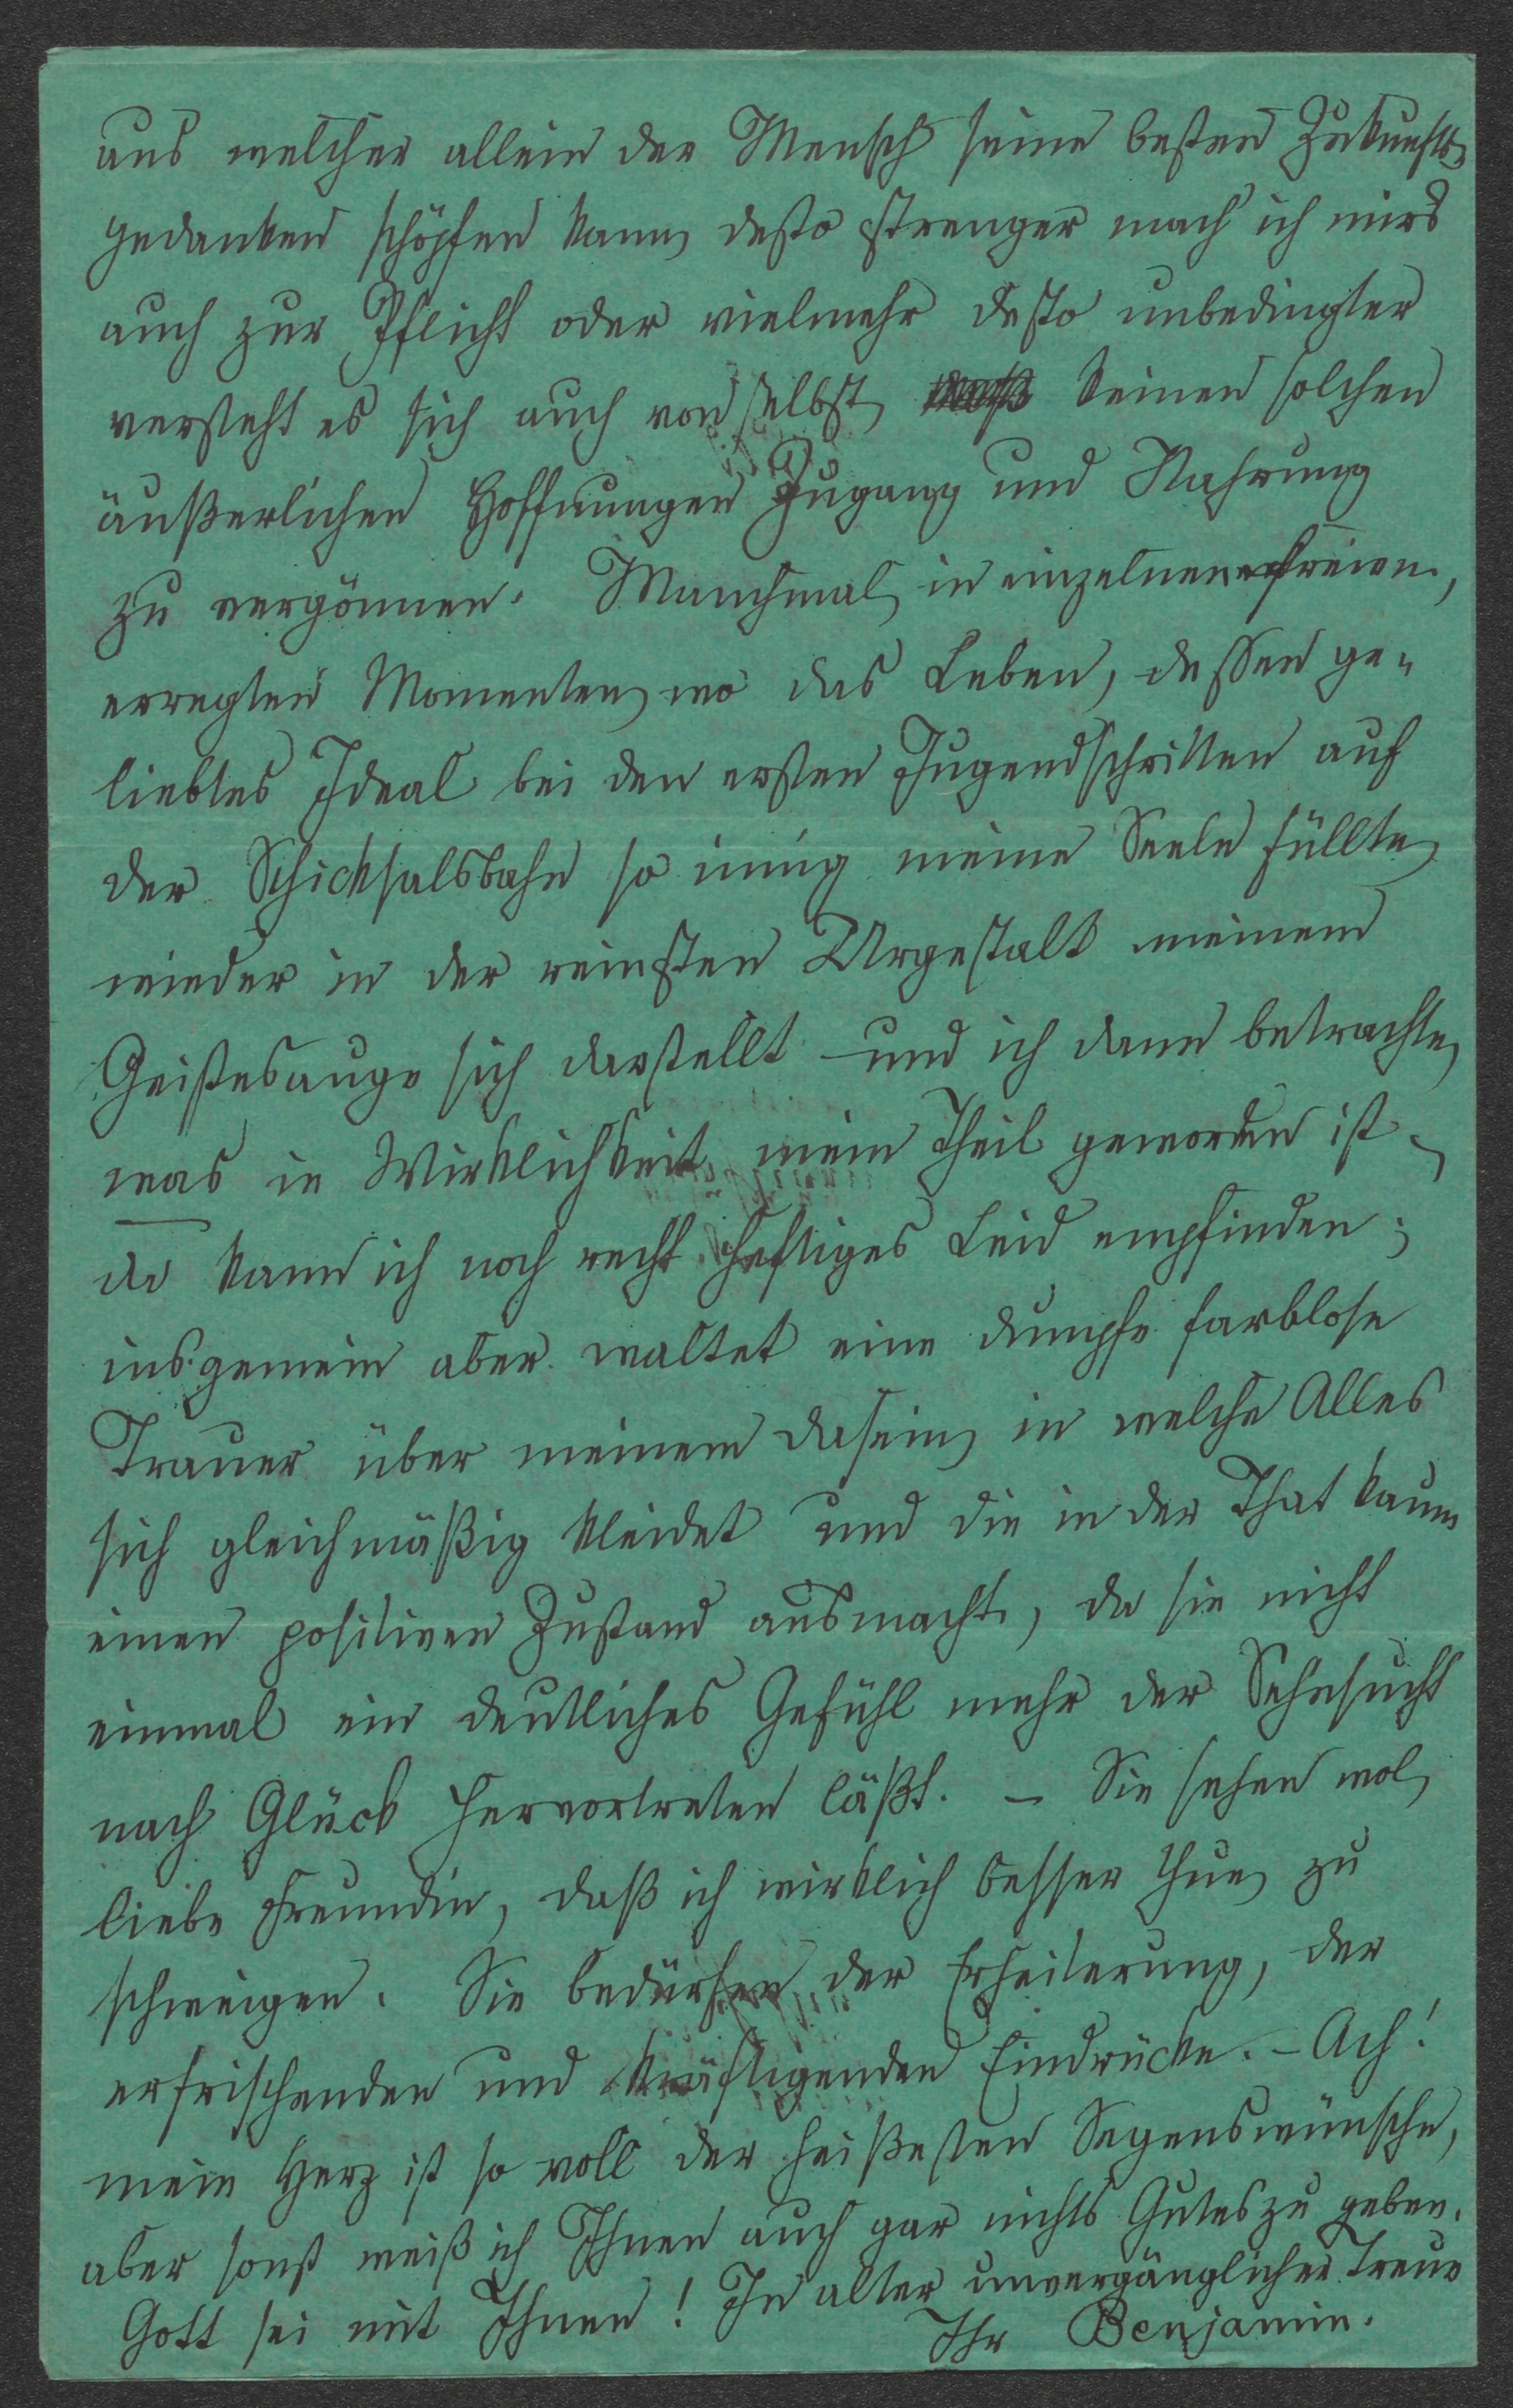 aus welcher allein der Mensch seine besten Zukunfts-
gedanken schöpfen kann, desto strenger mach' ich mirs
auch zur Pflicht oder vielmehr desto unbedingter
versteht es sich auch von selbst, keinen solchen
äußerlichen Hoffnungen Zugang und Nahrung
zu vergönnen. Manchmal, in einzelnen freien,
erregten Momenten, wo das Leben, dessen ge-
liebtes Ideal bei den ersten Jugendschritten auf
der Schicksalsbahn so innig meine Seele füllte,
wieder in der reinsten Urgestalt meinem
Geistesauge sich darstellt – und ich dann betrachte,
was in Wirklichkeit mein Theil geworden ist,
da kann ich noch recht heftiges Leid empfinden;
insgemein aber waltet eine dumpfe farblose
Trauer über meinem Dasein, in welche Alles
sich gleichmäßig kleidet und die in der That kaum
einen positiven Zustand ausmacht, da sie nicht
einmal ein deutliches Gefühl mehr der Sehnsucht
nach Glück hervortreten läßt. – Sie sehen wol,
liebe Freundin, daß ich wirklich besser thue, zu
schweigen. Sie bedürfen der Erheiterung, der
erfrischenden und kräftigenden Eindrücke. – Ach!
mein Herz ist so voll der heißesten Segenswünsche,
aber sonst weiß ich Ihnen auch gar nichts Gutes zu geben.
Gott sei mit Ihnen! In alter unvergänglicher Treue
Ihr Benjamin.